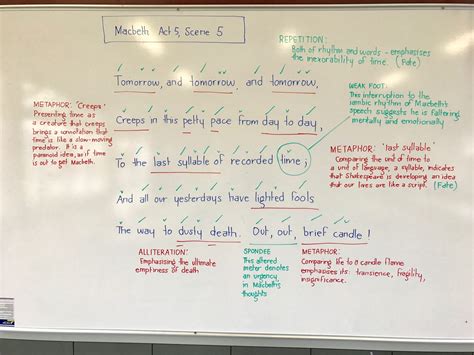 Macbeth Act 5, Scene 5
REPETITION:
Both of rhythm and words - emphasises
the inexorability of time. (Fate)
Tomorrow, and tomorrow, and tomorrow,
WEAK FOOT:
This interruption to the
iambic rhythm of Macbeth's
speech suggests he is faltering
mentally and emotionally
METAPHOR: 'Creeps'
Presenting time as
a creature that creeps
brings a connotation that
time is like a slow-moving
predator. It is a
paranoid idea, as if time
is out to get Macbeth.
Creeps in this petty pace from day to day,
To the last syllable of recorded time;
METAPHOR: 'last syllable'
Comparing the unit of time to
a unit of language, a syllable, indicates
that Shakespeare is developing an idea
that our lives are like a script. (Fate)
And all our yesterdays have lighted fools
The way to dusty death. Out, out, brief candle!
ALLITERATION:
Emphasising the ultimate
emptiness of death
SPONDEE
This altered
meter denotes
an urgency
in Macbeth's
thoughts
METAPHOR:
Comparing life to a candle flame
emphasises its transience, fragility,
insignificance.